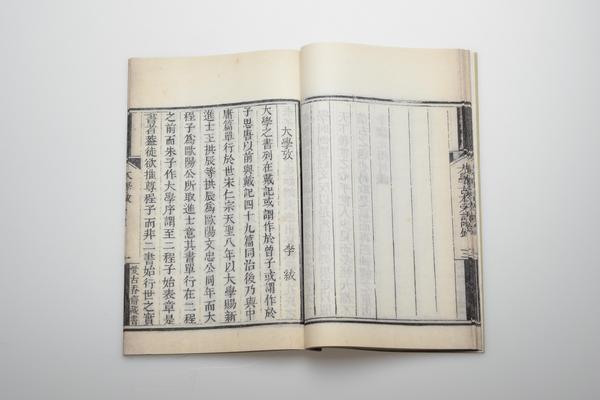 大學攷
李紱
大學之書列在戴記或謂作於曾子或謂作於
子思唐以前與戴記四十九篇同治後乃與中
庸篇單行於世宋仁宗天聖八年以大學賜新
進士王拱辰等拱辰爲歐陽文忠公同年而大
程子爲歐陽公所取進士意其書單行在二程
之前而朱子作大學序謂至二程子始表章是
書者蓋徒欲推尊程子而非二書始行世之實
大學攷